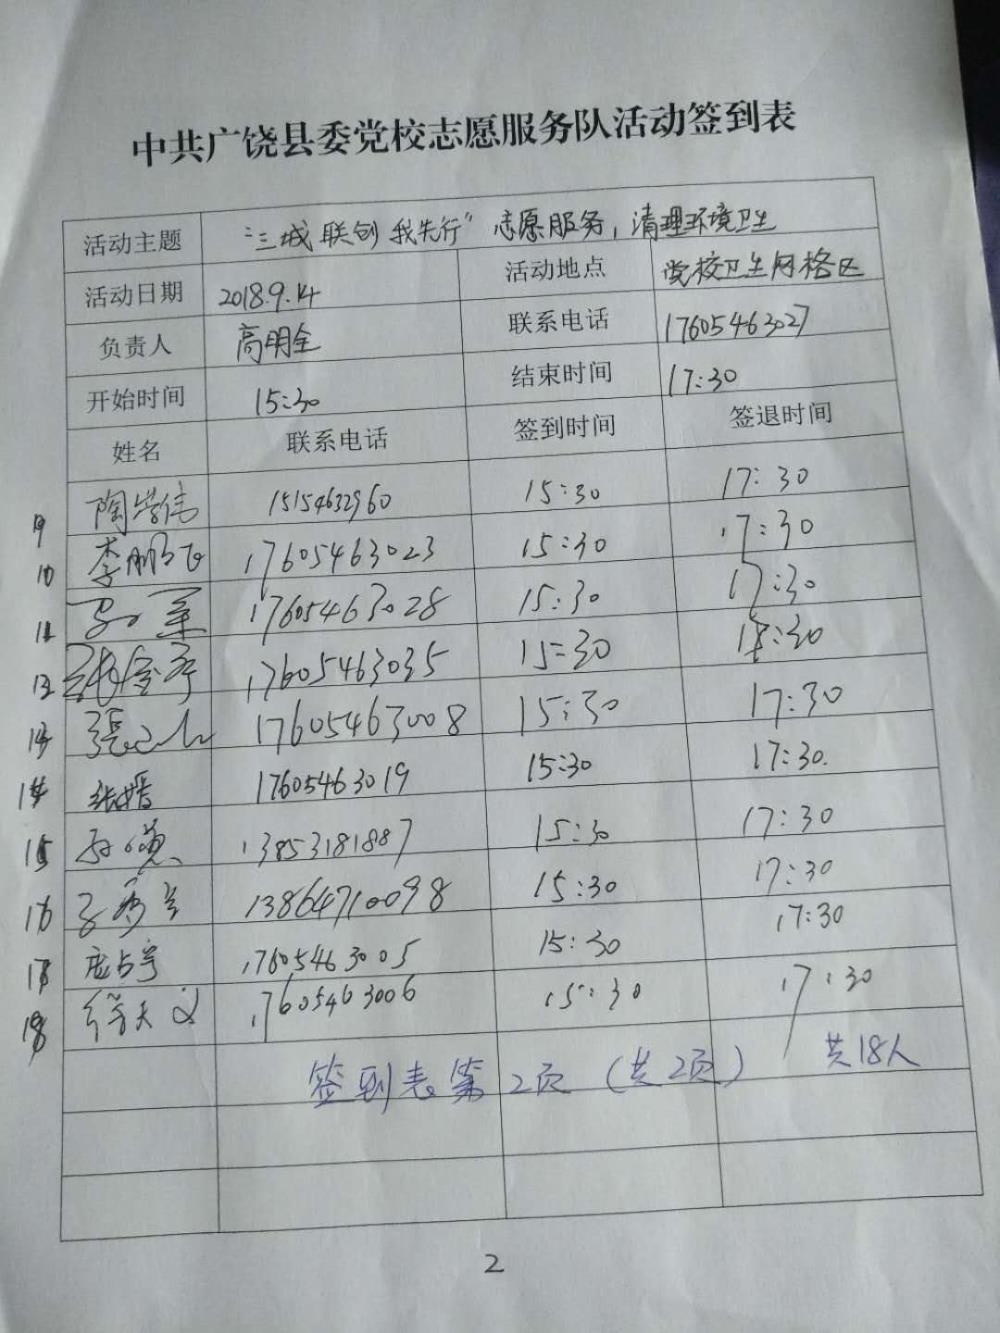 中共广饶县委党校志愿服务队活动签到表
活动主题 “三城联创 我先行”志愿服务,清理环境卫生
活动日期 2018.9.14 活动地点 党校卫生网格区
负责人 高明全 联系电话 17605463027
开始时间 15:30 结束时间 17:30
姓名 联系电话 签到时间 签退时间
9 陶学伟 15154632960 15:30 17:30
10 李鹏飞 17605463023 15:30 17:30
11 17605463028 15:30 17:30
12 17605463035 15:30 17:30
13 17605463008 15:30 17:30
14 张婿 17605463019 15:30 17:30.
15 13853181887 15:30 17:30
16 13864710098 15:30 17:30
17 17605463005 15:30 17:30
18 17605463006 15:30 17:30
签到表第2页(共2页) 共18人
2